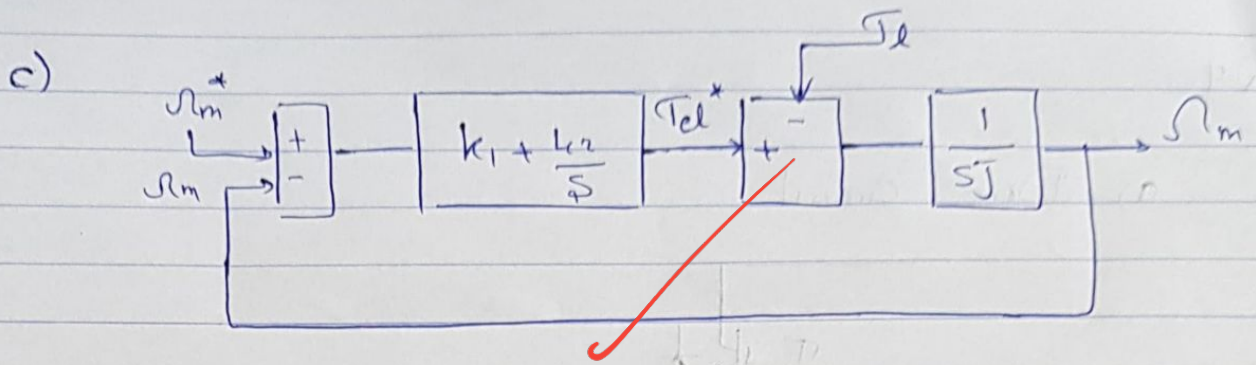 c)
Ωm*
Ωm
+
-
k₁ + k₂/S
Tel*
Tl
-
+
1/SJ
Ωm